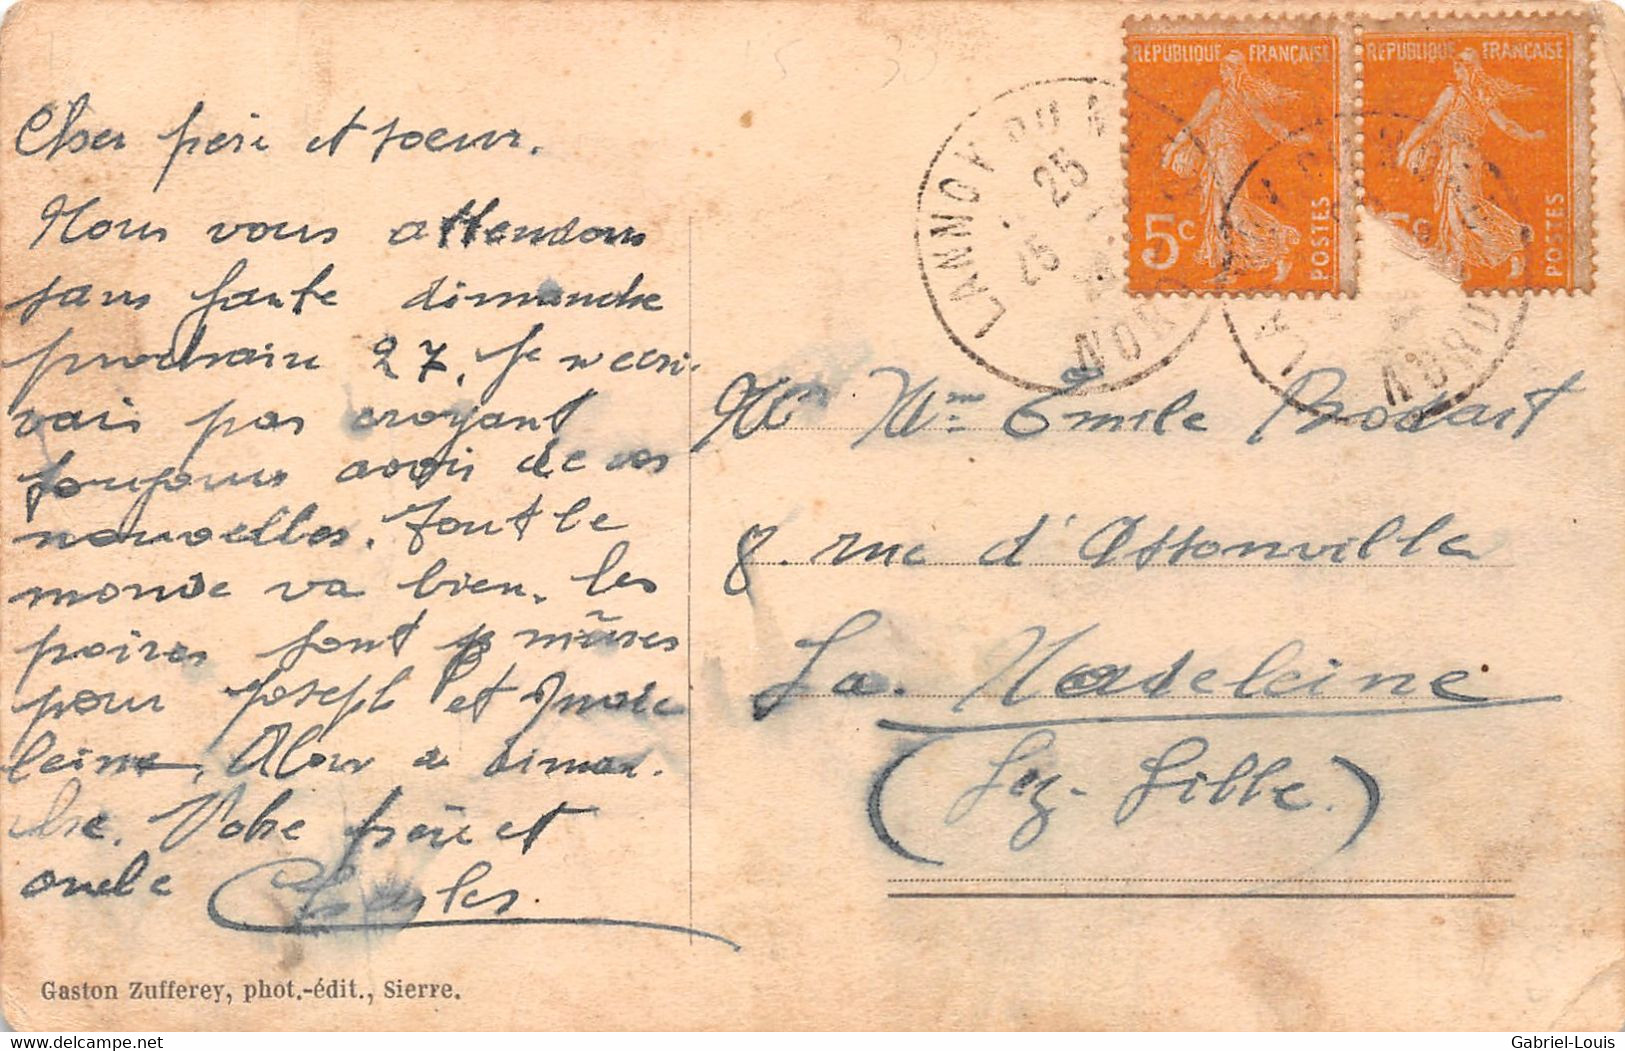 Cher frère et soeur.
Nous vous attendons
sans faute dimanche
prochain 27. Je n'ecri-
vais pas croyant
toujours avoir de vos
nouvelles. Tout le
monde va bien. les
poires sont mûres
pour Joseph et Made
leine. Alors à diman-
che. Votre frère et
oncle Charles.
Gaston Zufferey, phot.-édit., Sierre.
REPUBLIQUE FRANÇAISE
5c POSTES
REPUBLIQUE FRANÇAISE
POSTES
LANNOY DU N
25
25
NORD
NORD
Mr Mme Emile Rodart
8. rue d'Assonville
La. Madeleine
(Lez-Lille.)
delcampe.net
Gabriel-Louis